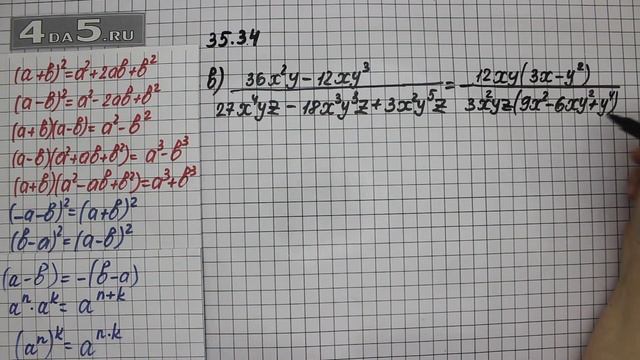 4 ДА 5.RU
(a+b)²=a²+2ab+b²
(a-b)²=a²-2ab+b²
(a+b)(a-b)=a²-b²
(a-b)(a²+ab+b²)=a³-b³
(a+b)(a²-ab+b²)=a³+b³
(-a-b)²=(a+b)²
(b-a)²=(a-b)²
(a-b)=-(b-a)
aⁿ·aᵏ=aⁿ⁺ᵏ
(aⁿ)ᵏ=aⁿ·ᵏ
35.34
в) 36x²y-12xy³ / 27x⁴yz-18x³y³z+3x²y⁵z = 12xy(3x-y²) / 3x²yz(9x²-6xy²+y⁴)